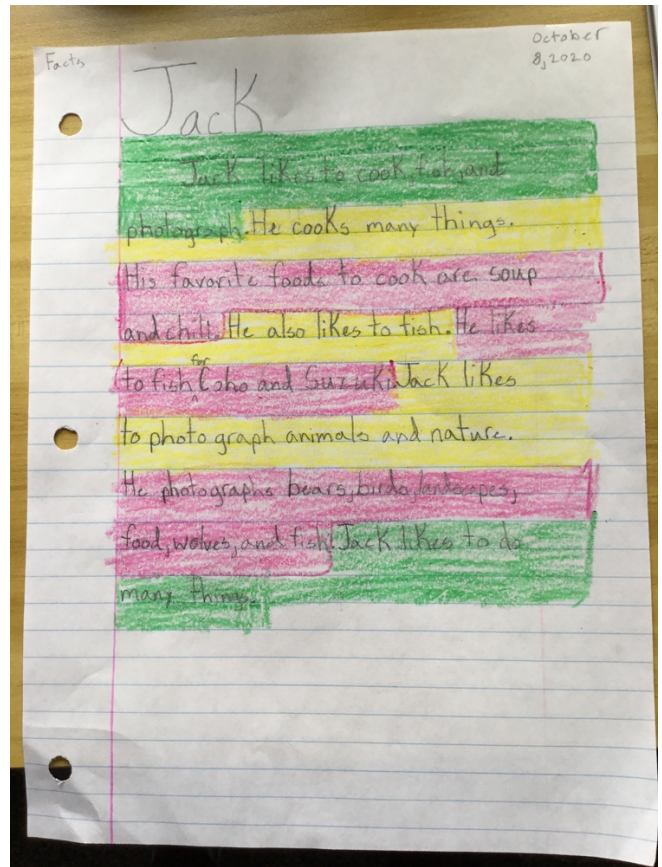 Facts
October
8, 2020
Jack
Jack likes to cook, fish, and
photograph. He cooks many things.
His favorite foods to cook are soup
and chili. He also likes to fish. He likes
for
to fish ^ Coho and Suzuki. Jack likes
to photograph animals and nature.
He photographs bears, birds, landscapes,
food, wolves, and fish! Jack likes to do
many things.